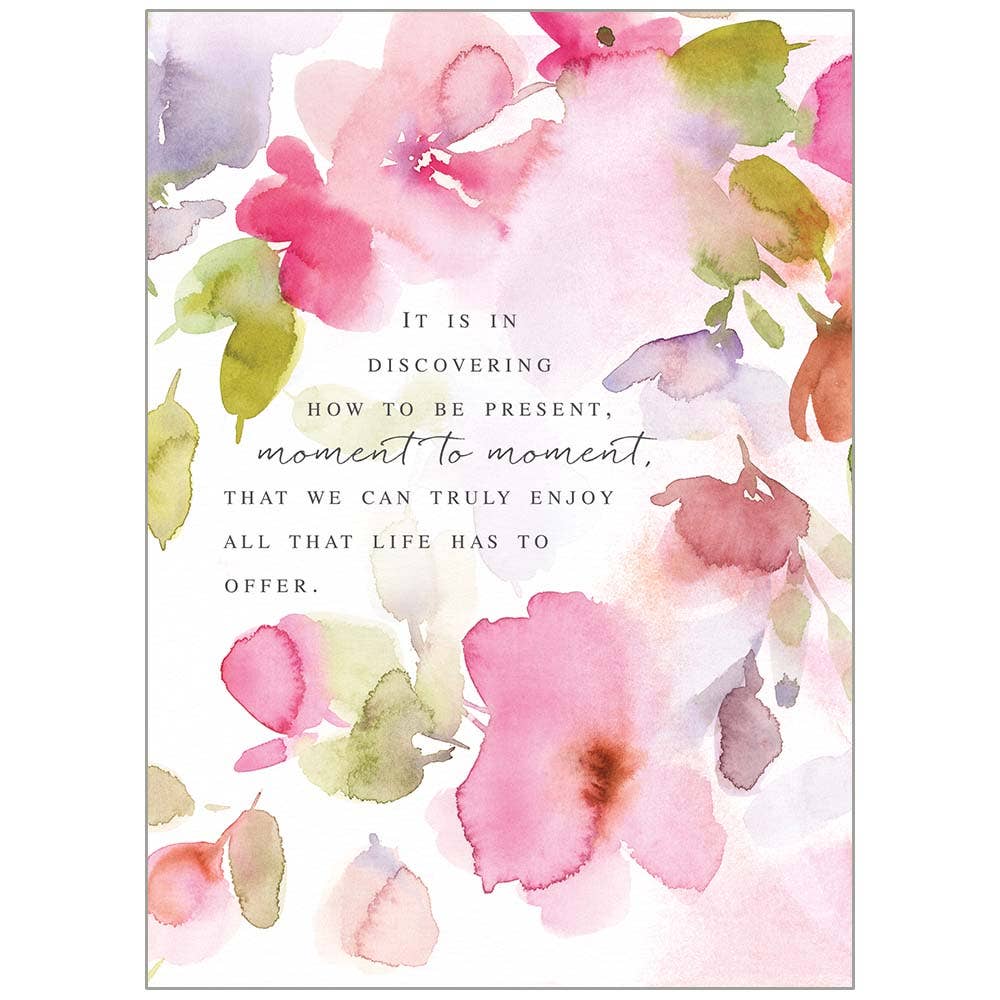 It is in
discovering
how to be present,
moment to moment,
that we can truly enjoy
all that life has to
offer.